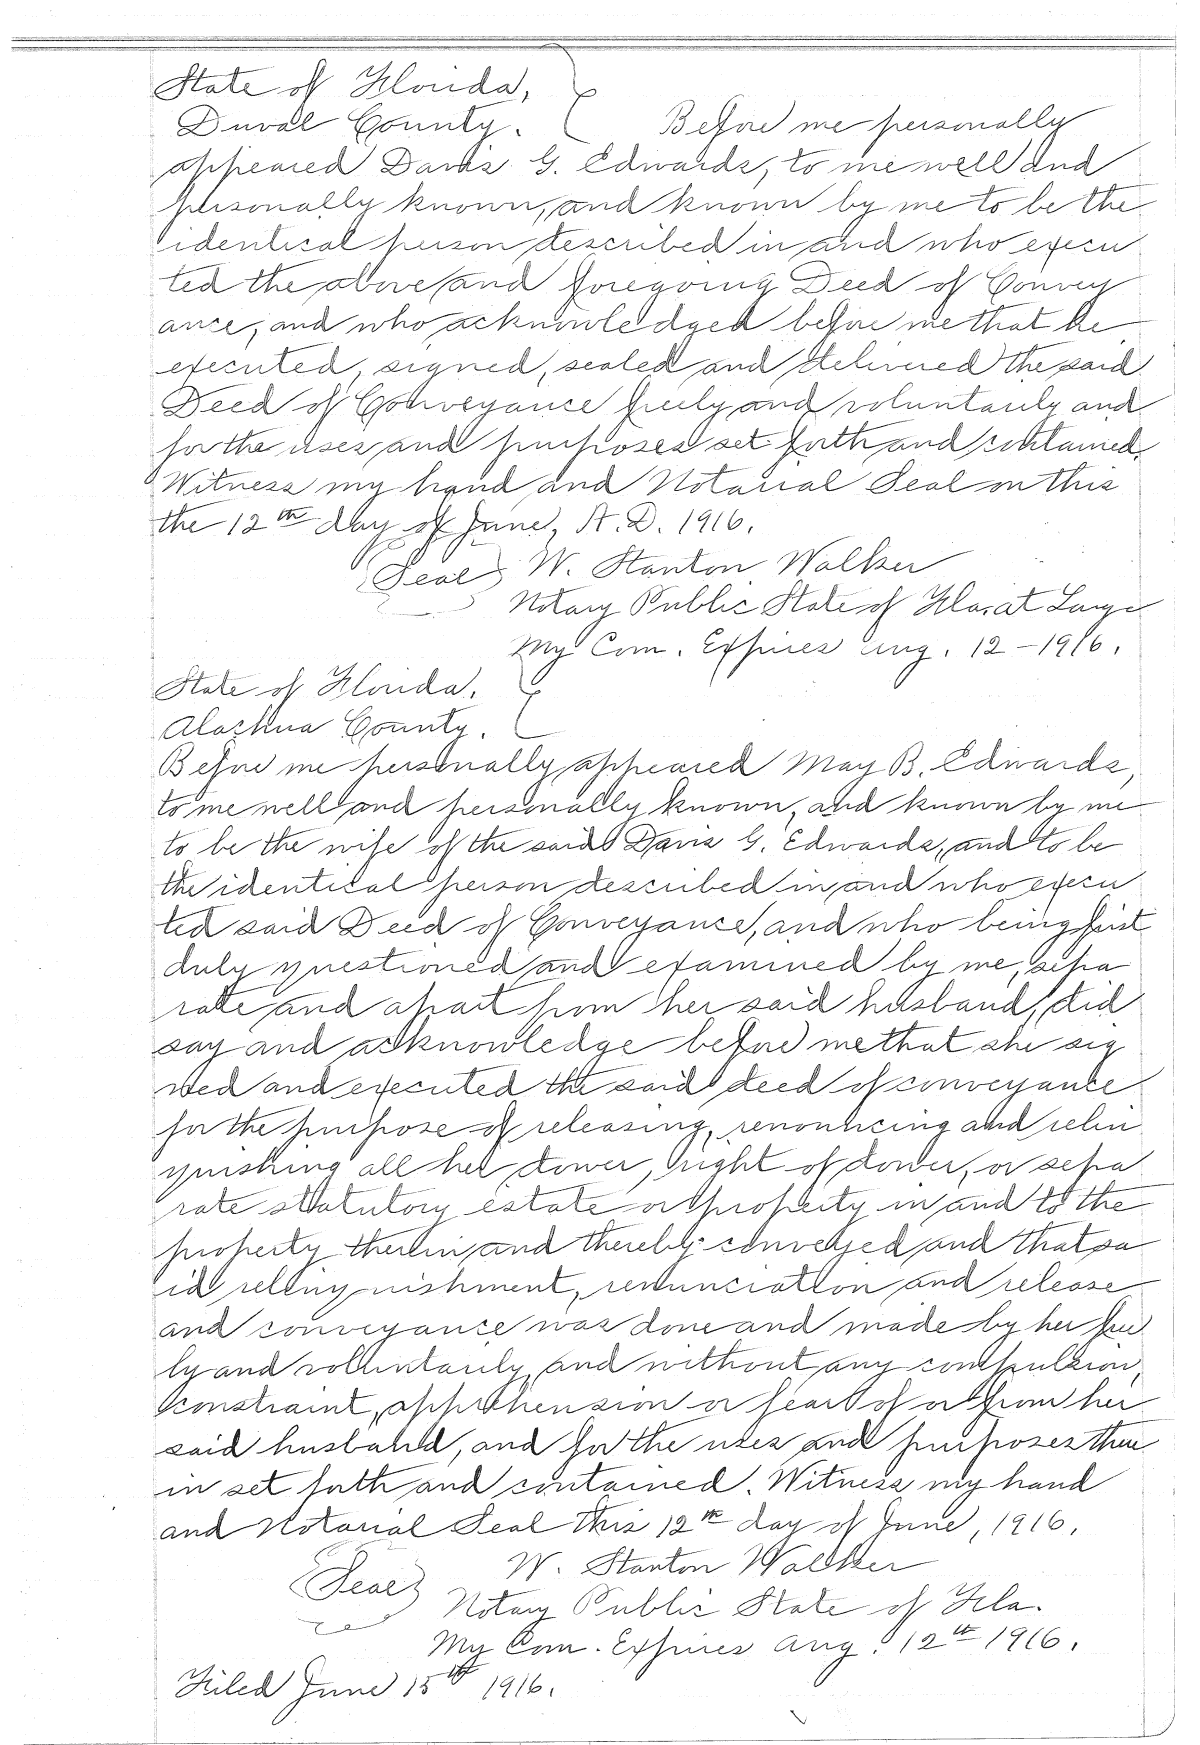 State of Florida,
Duval County. Before me personally
appeared Davis G. Edwards, to me well and
personally known, and known by me to be the
identical person described in and who execu
ted the above and foregoing Deed of Convey
ance, and who acknowledged before me that he
executed, signed, sealed and delivered the said
Deed of Conveyance freely and voluntarily and
for the uses and purposes set forth and contained.
Witness my hand and Notarial Seal on this
the 12th day of June, A.D. 1916.
(Seal) W. Stanton Walker
Notary Public State of Fla. at Large
My Com. Expires Aug. 12-1916.
State of Florida,
Alachua County.
Before me personally appeared May B. Edwards,
to me well and personally known, and known by me
to be the wife of the said Davis G. Edwards, and to be
the identical person described in and who execu
ted said Deed of Conveyance, and who being first
duly questioned and examined by me, sepa
rate and apart from her said husband, did
say and acknowledge before me that she sig
ned and executed the said deed of conveyance
for the purpose of releasing, renouncing and relin
quishing all her dower, right of dower, or sepa
rate statutory estate or property in and to the
property therein and thereby conveyed and that sa
id relinquishment, renunciation and release
and conveyance was done and made by her free
ly and voluntarily, and without any compulsion,
constraint, apprehension or fear of or from her
said husband, and for the uses and purposes there
in set forth and contained. Witness my hand
and Notarial Seal this 12th day of June, 1916.
(Seal) W. Stanton Walker
Notary Public State of Fla.
My Com. Expires Aug. 12th 1916.
Filed June 15th 1916.